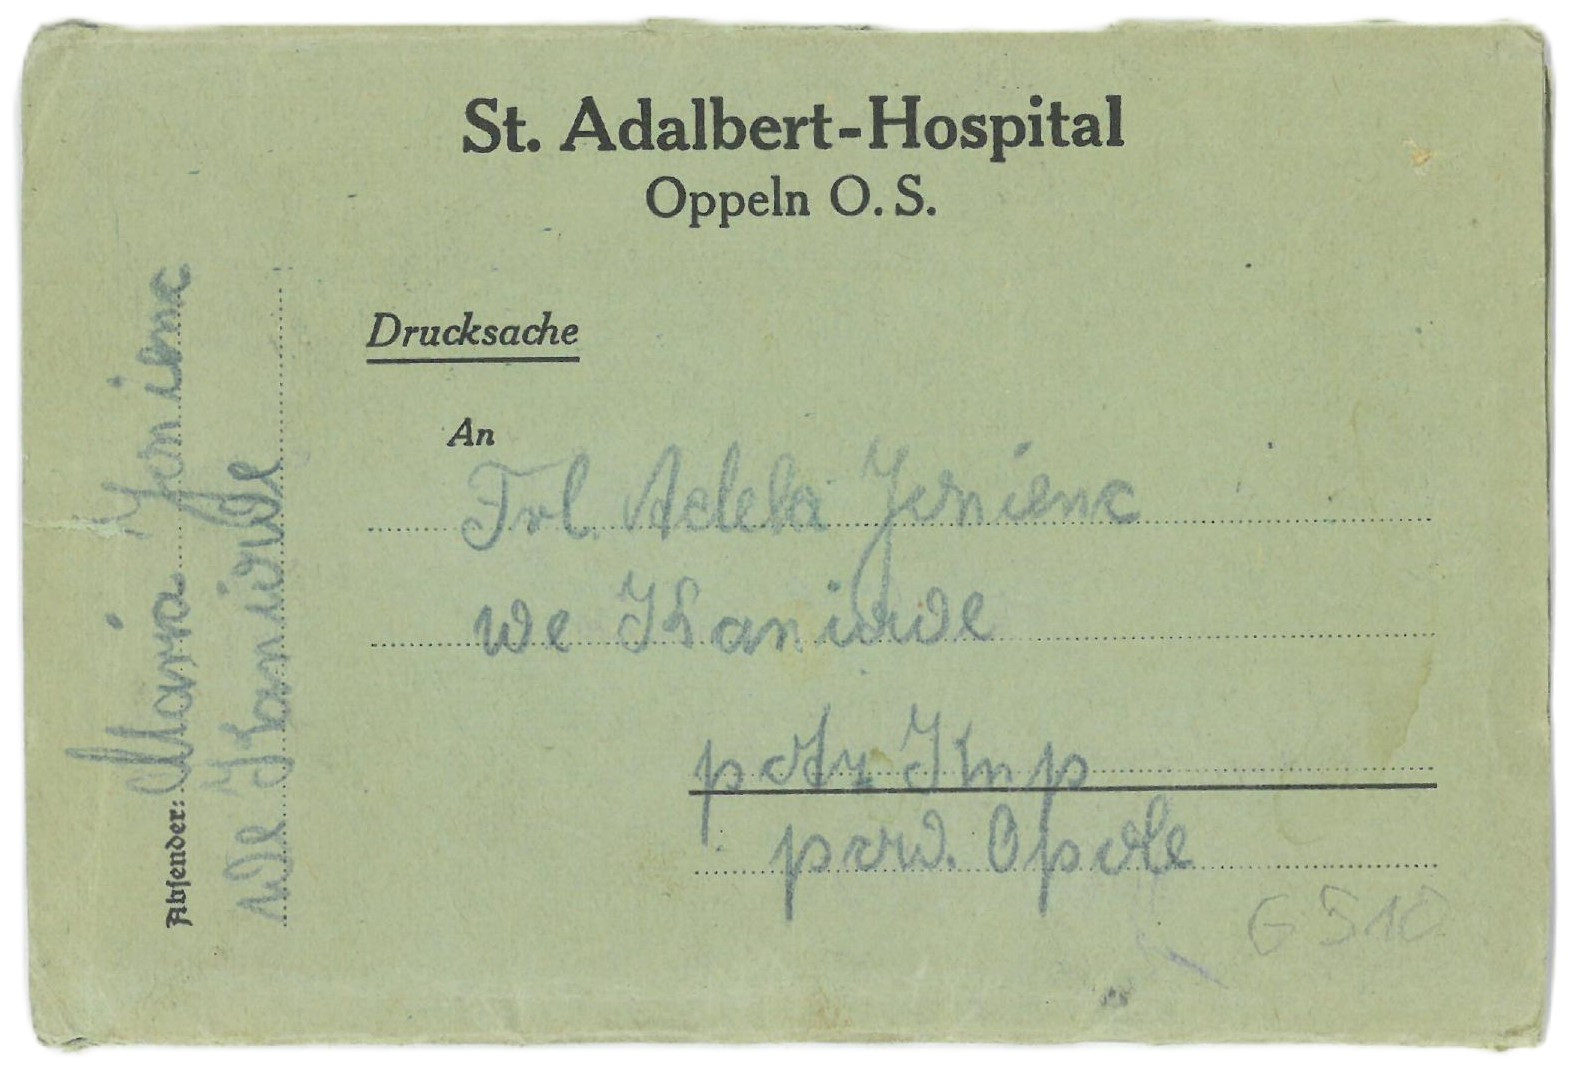 St. Adalbert-Hospital
Oppeln O. S.
Drucksache
An
Frl. Adela Jenienc
we Kaniowe
potz Kup
pow. Opole
Absender: Maria Jenienc
we Kaniowe
G 510